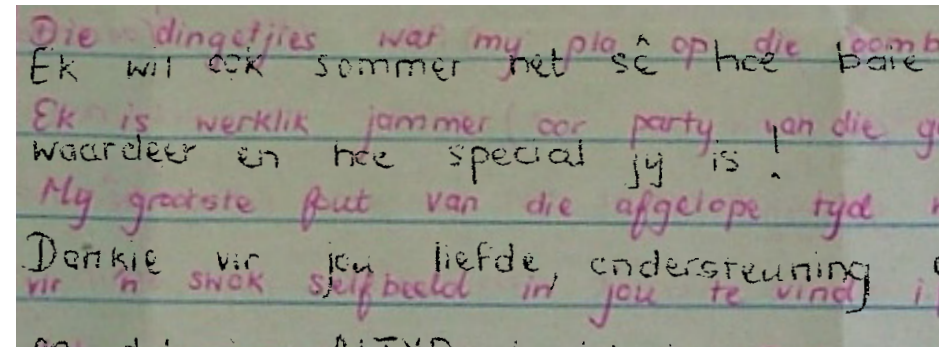 Die dingetjies wat my pla op die
Ek wil ook sommer net sê hoe baie
Ek is werklik jammer oor party van die
waardeer en hoe special jy is!
My grootste fout van die afgelope tyd
Dankie vir jou liefde, ondersteuning
vir 'n swak selfbeeld in jou te vind